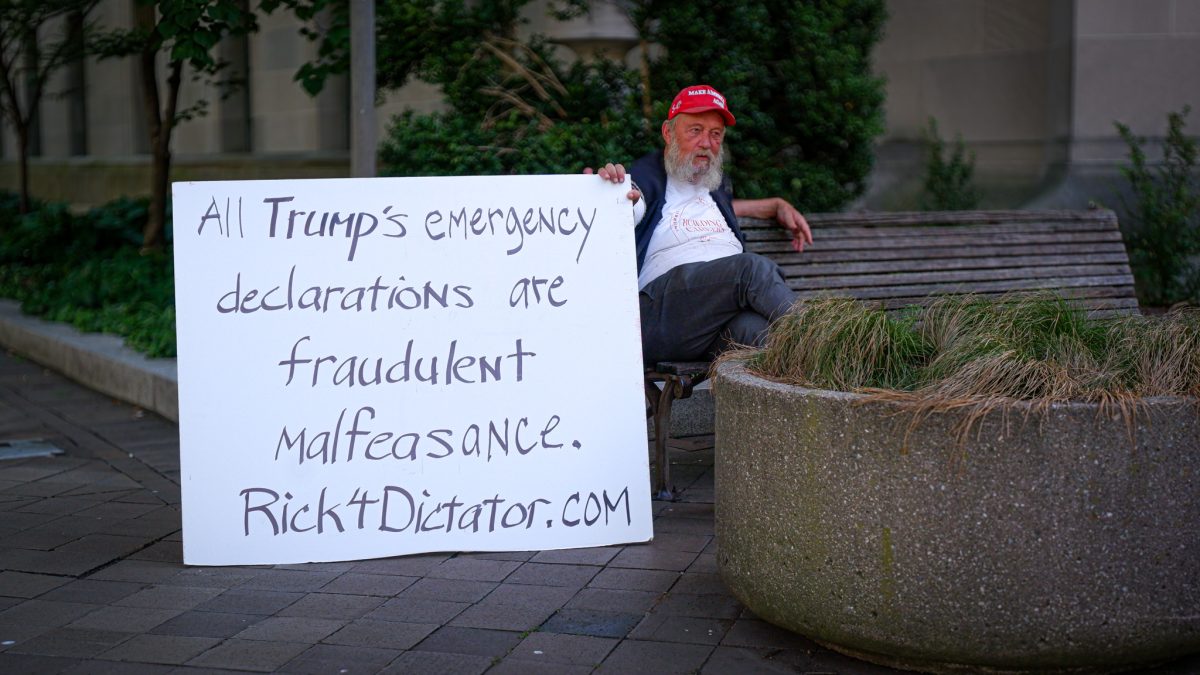 MAKE AMERICA
AGAIN
All Trump's emergency
declarations are
fraudulent
Malfeasance.
Rick4Dictator.com
BUILDING